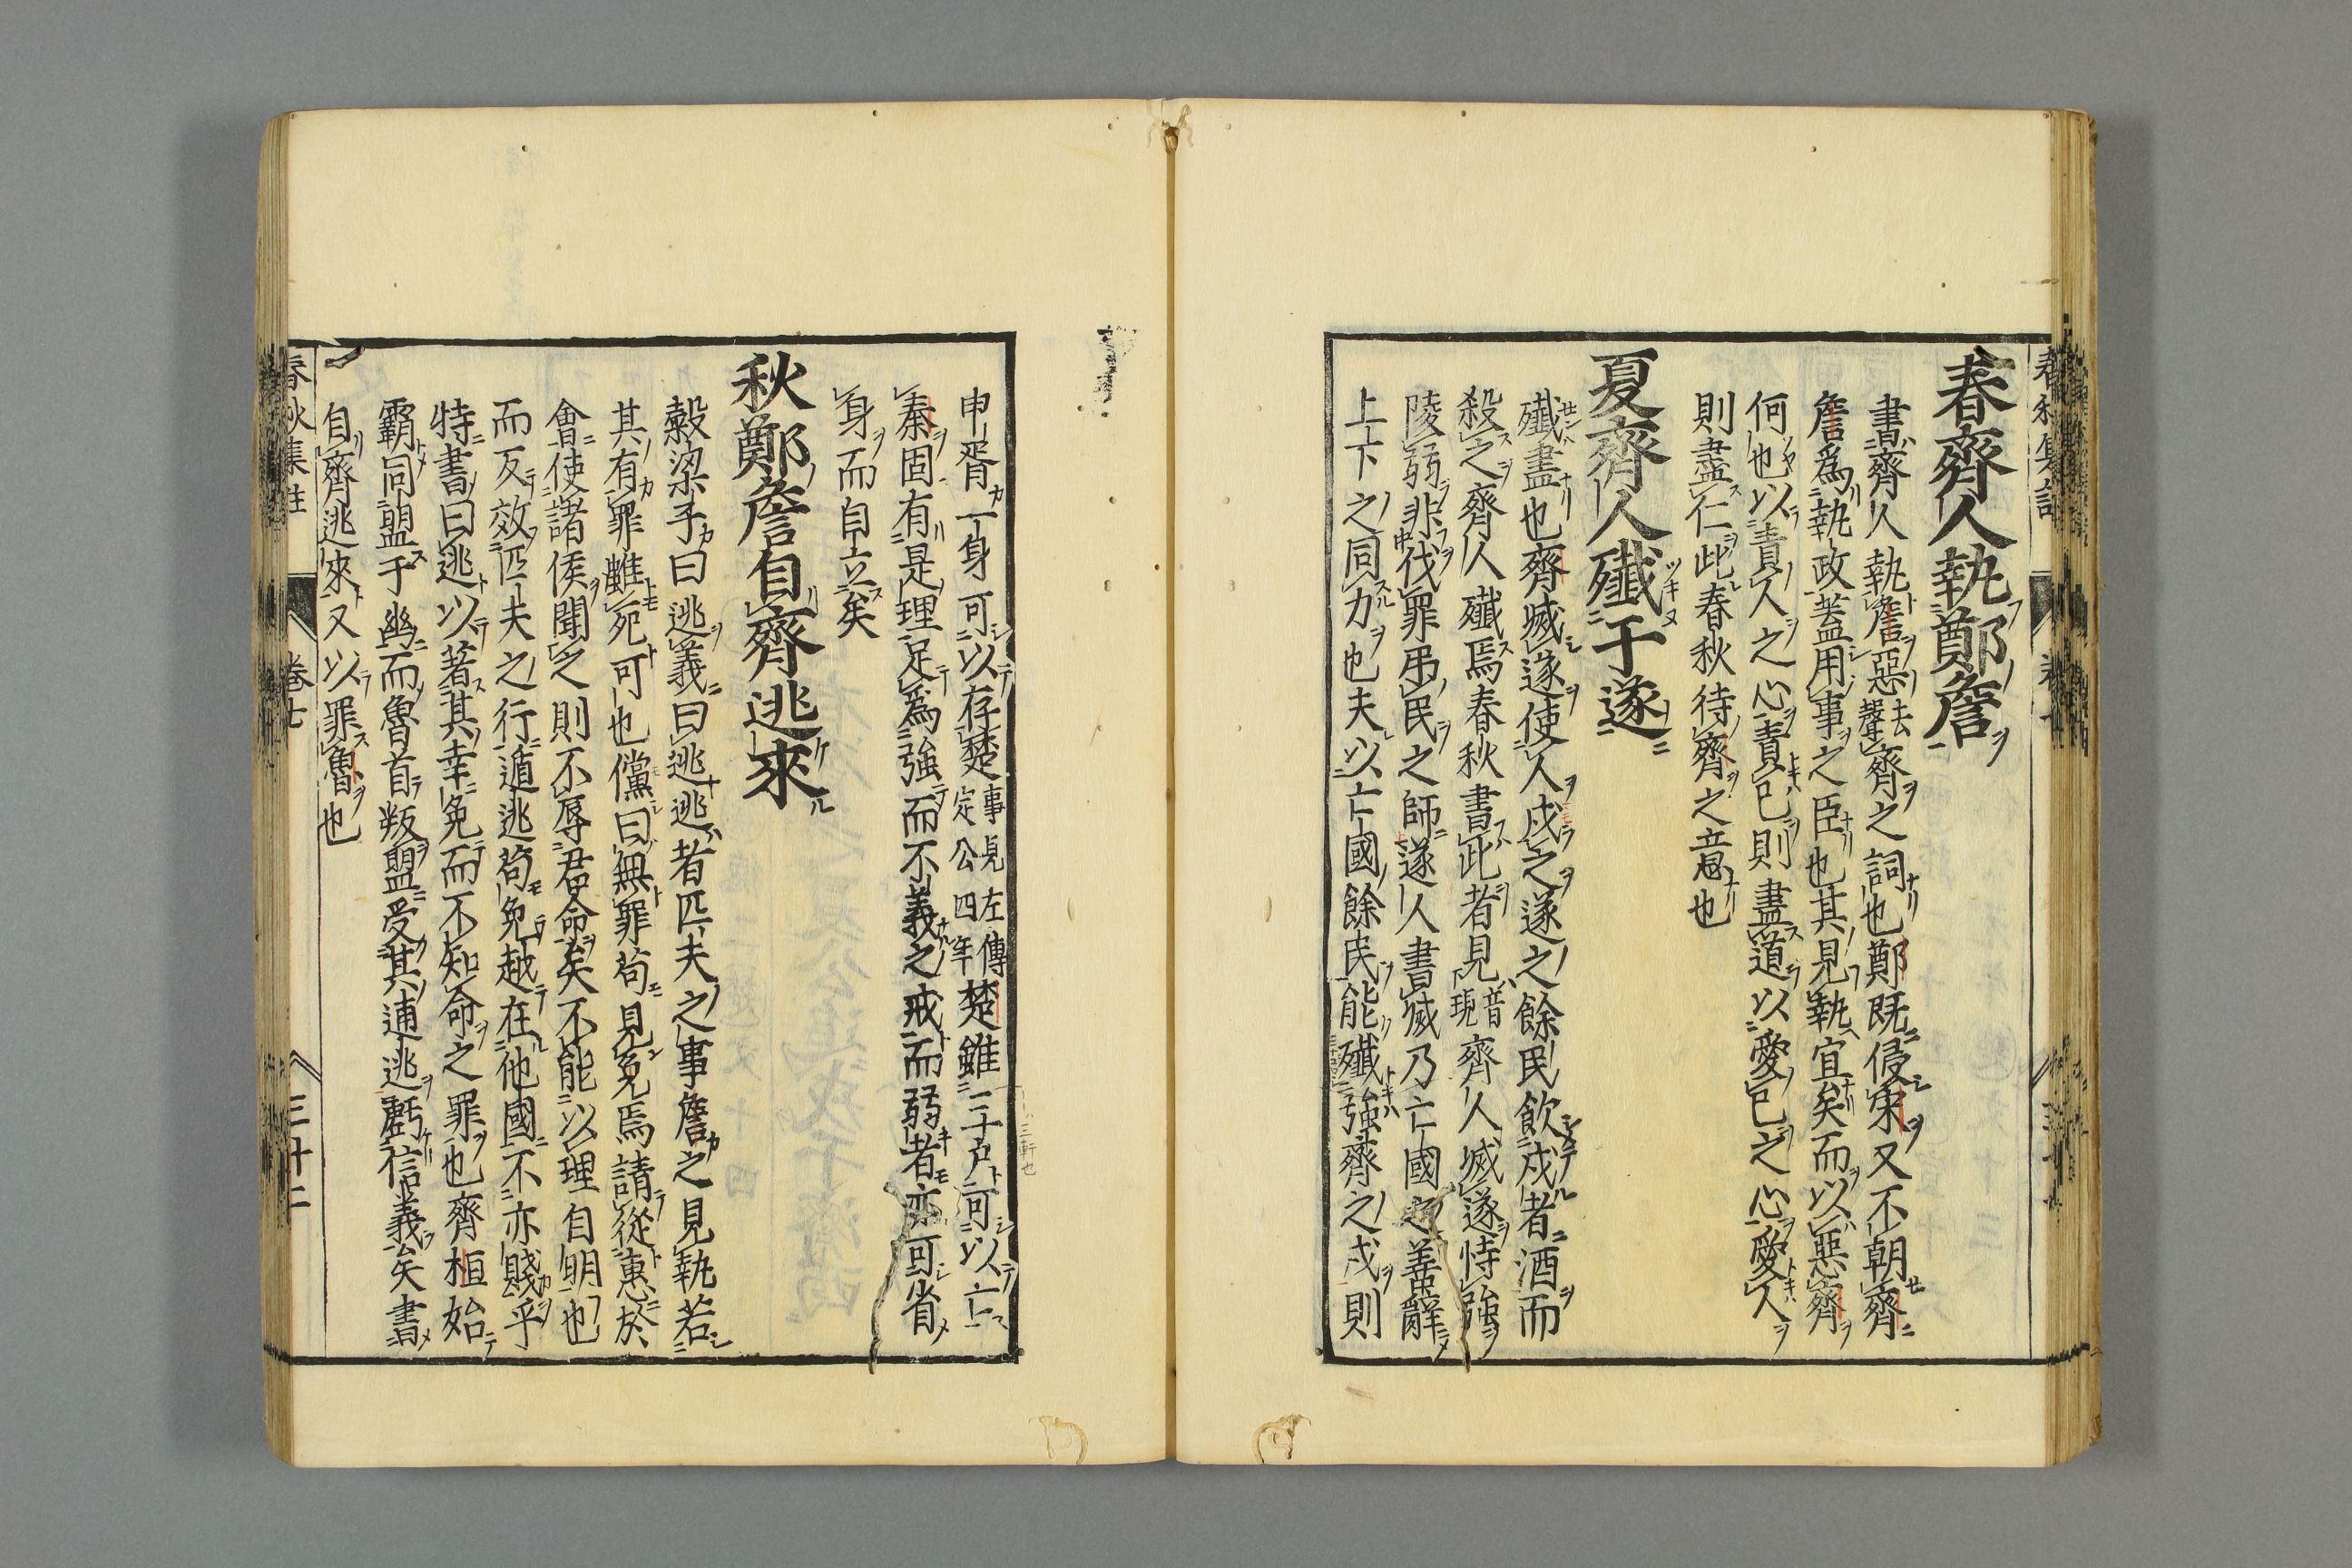 春齊人執鄭詹
書齊人執詹惡去聲齊之詞也鄭既侵宋又不朝齊
詹爲執政蓋用事之臣也其見執宜矣而以惡齊
何也以責人之心責己則盡道以愛己之心愛人
則盡仁此春秋待齊之意也
夏齊人殲于遂
殲盡也齊滅遂使人戍之遂之餘民飲戍者酒而
殺之齊人殲焉春秋書此者見音現齊人滅遂恃強
陵弱非伐罪弔民之師遂人書滅乃亡國之善辭
上下之同力也夫以亡國餘民能殲強齊之戍則
申胥一身可以存楚事見左傳定公四年楚雖三戶可以亡
秦固有是理足爲強而不義之戒而弱者亦可省
身而自立矣
秋鄭詹自齊逃來
穀梁子曰逃義曰逃逃者匹夫之事詹之見執若
其有罪雖死可也儻曰無罪苟見免焉請從惠於
會使諸侯聞之則不辱君命矣不能以理自明也
而反效匹夫之行遁逃苟免越在他國不亦賤乎
特書曰逃以著其幸免而不知命之罪也齊桓始
霸同盟于幽而魯首叛盟受其逋逃虧信義矣書
自齊逃來又以罪魯也
春秋集註 卷七 三十二